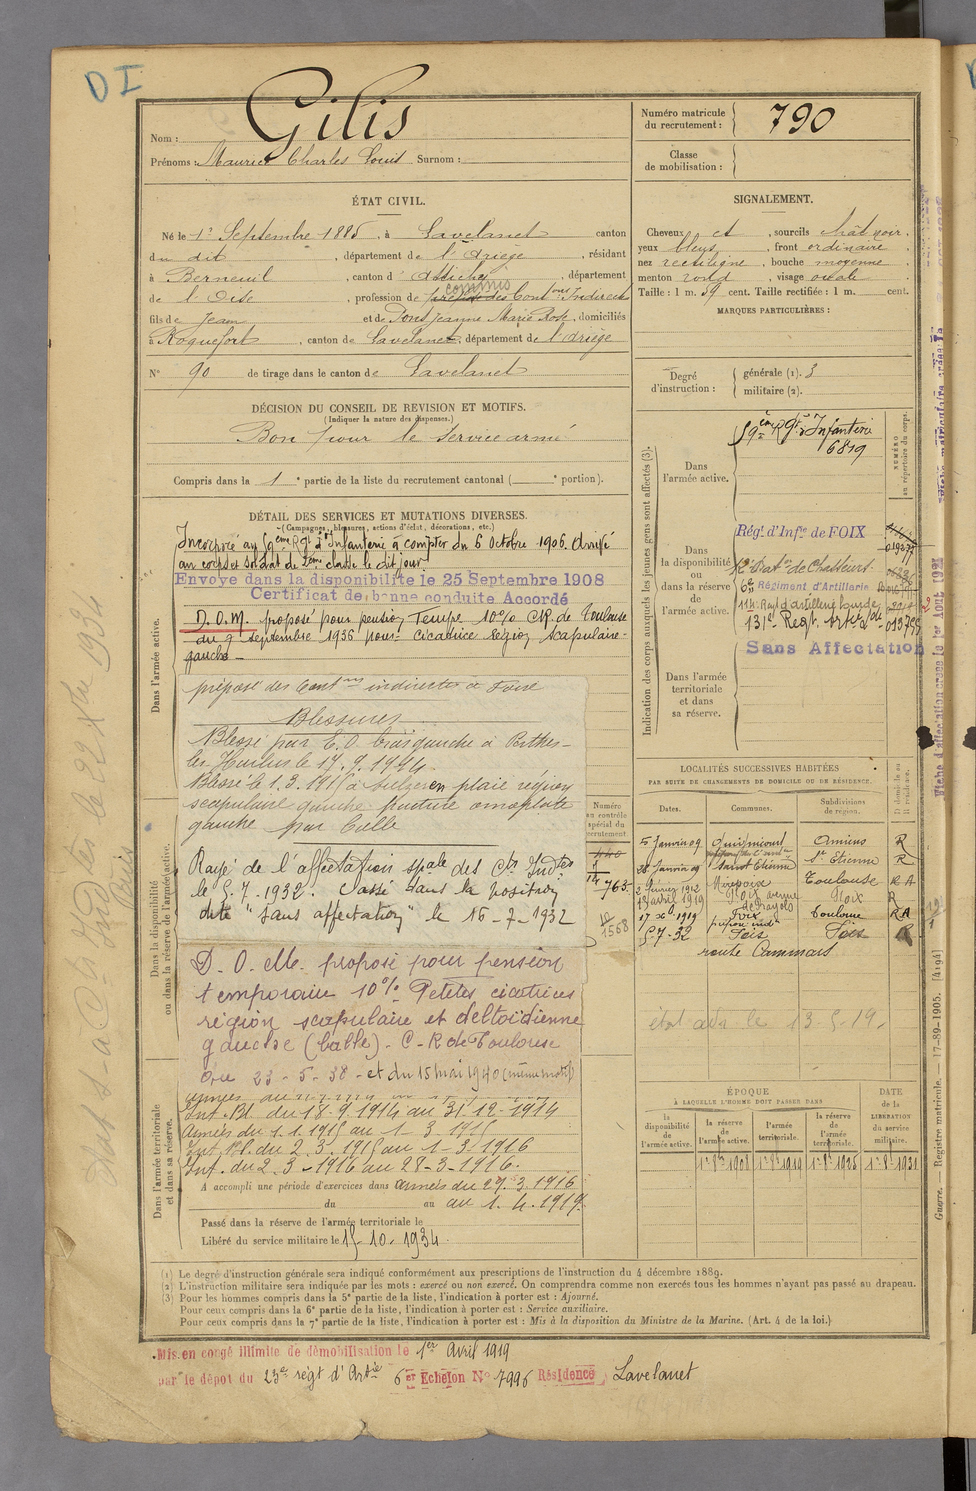 DI
Nom : Gilis
Prénoms : Maurice Charles Louis Surnom :
Numéro matricule
du recrutement : 790
Classe
de mobilisation :
ÉTAT CIVIL.
Né le 1er Septembre 1885, à Lavelanet canton
du dit, département de l'Ariège, résidant
à Berneuil, canton d'Attichy, département
de l'Oise, profession de commis des Contons Indirectes
fils de Jean et de Pons Jeanne Marie Rose, domiciliés
à Roquefort, canton de Lavelanet, département de l'Ariège
N° 90 de tirage dans le canton de Lavelanet
SIGNALEMENT.
Cheveux ct, sourcils chât noir,
yeux bleus, front ordinaire
nez rectiligne, bouche moyenne
menton rond, visage ovale
Taille : 1 m. 59 cent. Taille rectifiée : 1 m. cent.
MARQUES PARTICULIÈRES :
Degré
d'instruction :
générale (1). 3
militaire (2).
DÉCISION DU CONSEIL DE REVISION ET MOTIFS.
(Indiquer la nature des dispenses.)
Bon pour le service armé
Compris dans la 1e partie de la liste du recrutement cantonal ( e portion).
DÉTAIL DES SERVICES ET MUTATIONS DIVERSES.
(Campagnes, blessures, actions d'éclat, décorations, etc.)
Dans l'armée active.
Incorporé au 59ème Rgt d'Infanterie à compter du 6 Octobre 1906. Arrivé
au corps et soldat de 2ème classe le dit jour.
Envoyé dans la disponibilité le 25 Septembre 1908
Certificat de bonne conduite Accordé
D.O.M. proposé pour pension Tempre 10% CR. de Toulouse
du 9 septembre 1936 pour cicatrice région scapulaire
gauche
préposé des Contons indirectes à Foix
Blessures
Blessé par E.O bras gauche à Perthes-
les-Hurlus le 17.9.1914.
Blessé le 1.3.1915 à en plaie région
scapulaire gauche fracture omoplate
gauche par balle
Dans la disponibilité
ou dans la réserve de l'armée active.
Rayé de l'affectation spale des Cts Indtes
le 5.7.1932. Passé dans la position
dite "sans affectation" le 16-7-1932
D.O.M. proposé pour pension
temporaire 10% Petites cicatrices
région scapulaire et deltoïdienne
gauche (balle). C-R de Toulouse
du 23-5-38 - et du 15 mai 1940 (même motif)
Dans l'armée territoriale
et dans sa réserve.
Int. Bl. du 18.9.1914 au 31-12-1914
Armées du 1.1.1915 au 1-3-1915
Int. Bl. du 2.3.1915 au 1-3-1916
Int. du 2.3-1916 au 28-3-1916.
A accompli une période d'exercices dans armées du 29.3.1916
du au au 1.4.1919.
Passé dans la réserve de l'armée territoriale le
Libéré du service militaire le 15-10-1934
Numéro
au contrôle
spécial du
recrutement.
763
1568
Indication des corps auxquels les jeunes gens sont affectés (3).
NUMÉRO
au répertoire du corps.
Dans
l'armée active.
59ème Rgt d'Infanterie
6819
Dans
la disponibilité
ou
dans la réserve
de
l'armée active.
Régt d'Infie de FOIX
12e Batn de Chasseurs
6e Régiment d'Artillerie
114e Regt d'artillerie lourde
131e Regt Artrie 013755
Sans Affectation
Dans l'armée
territoriale
et dans
sa réserve.
LOCALITÉS SUCCESSIVES HABITÉES
PAR SUITE DE CHANGEMENTS DE DOMICILE OU DE RÉSIDENCE.
Dates. Communes. Subdivisions
de région. D domicile ou
R résidence.
5 Janvier 09 Amiens R
28 Janvier 09 Saint Etienne St Etienne R
2 février 1912 Mirepoix Toulouse RA
18 avril 1919 Foix avenue Foix R
17 xbre 1919 Foix Toulouse RA
5-7-32 Foix Foix R
route
état adr le 13-5-19.
ÉPOQUE
À LAQUELLE L'HOMME DOIT PASSER DANS
la
disponibilité
de
l'armée active.
la réserve
de
l'armée active.
l'armée
territoriale.
la réserve
de
l'armée
territoriale.
DATE
de la
LIBÉRATION
du service
militaire.
1er 8bre 1908 1er 8bre 1919 1er 8bre 1925 1er 8bre 1931
(1) Le degré d'instruction générale sera indiqué conformément aux prescriptions de l'instruction du 4 décembre 1889.
(2) L'instruction militaire sera indiquée par les mots : exercé ou non exercé. On comprendra comme non exercés tous les hommes n'ayant pas passé au drapeau.
(3) Pour les hommes compris dans la 5e partie de la liste, l'indication à porter est : Ajourné.
Pour ceux compris dans la 6e partie de la liste, l'indication à porter est : Service auxiliaire.
Pour ceux compris dans la 7e partie de la liste, l'indication à porter est : Mis à la disposition du Ministre de la Marine. (Art. 4 de la loi.)
Mis en congé illimité de démobilisation le 1er Avril 1919
par le dépôt du 23e régt d'Artie 6er Échelon N° 7996 Résidence Lavelanet
Guerre. — Registre matricule. — 17-89-1905. [4194]